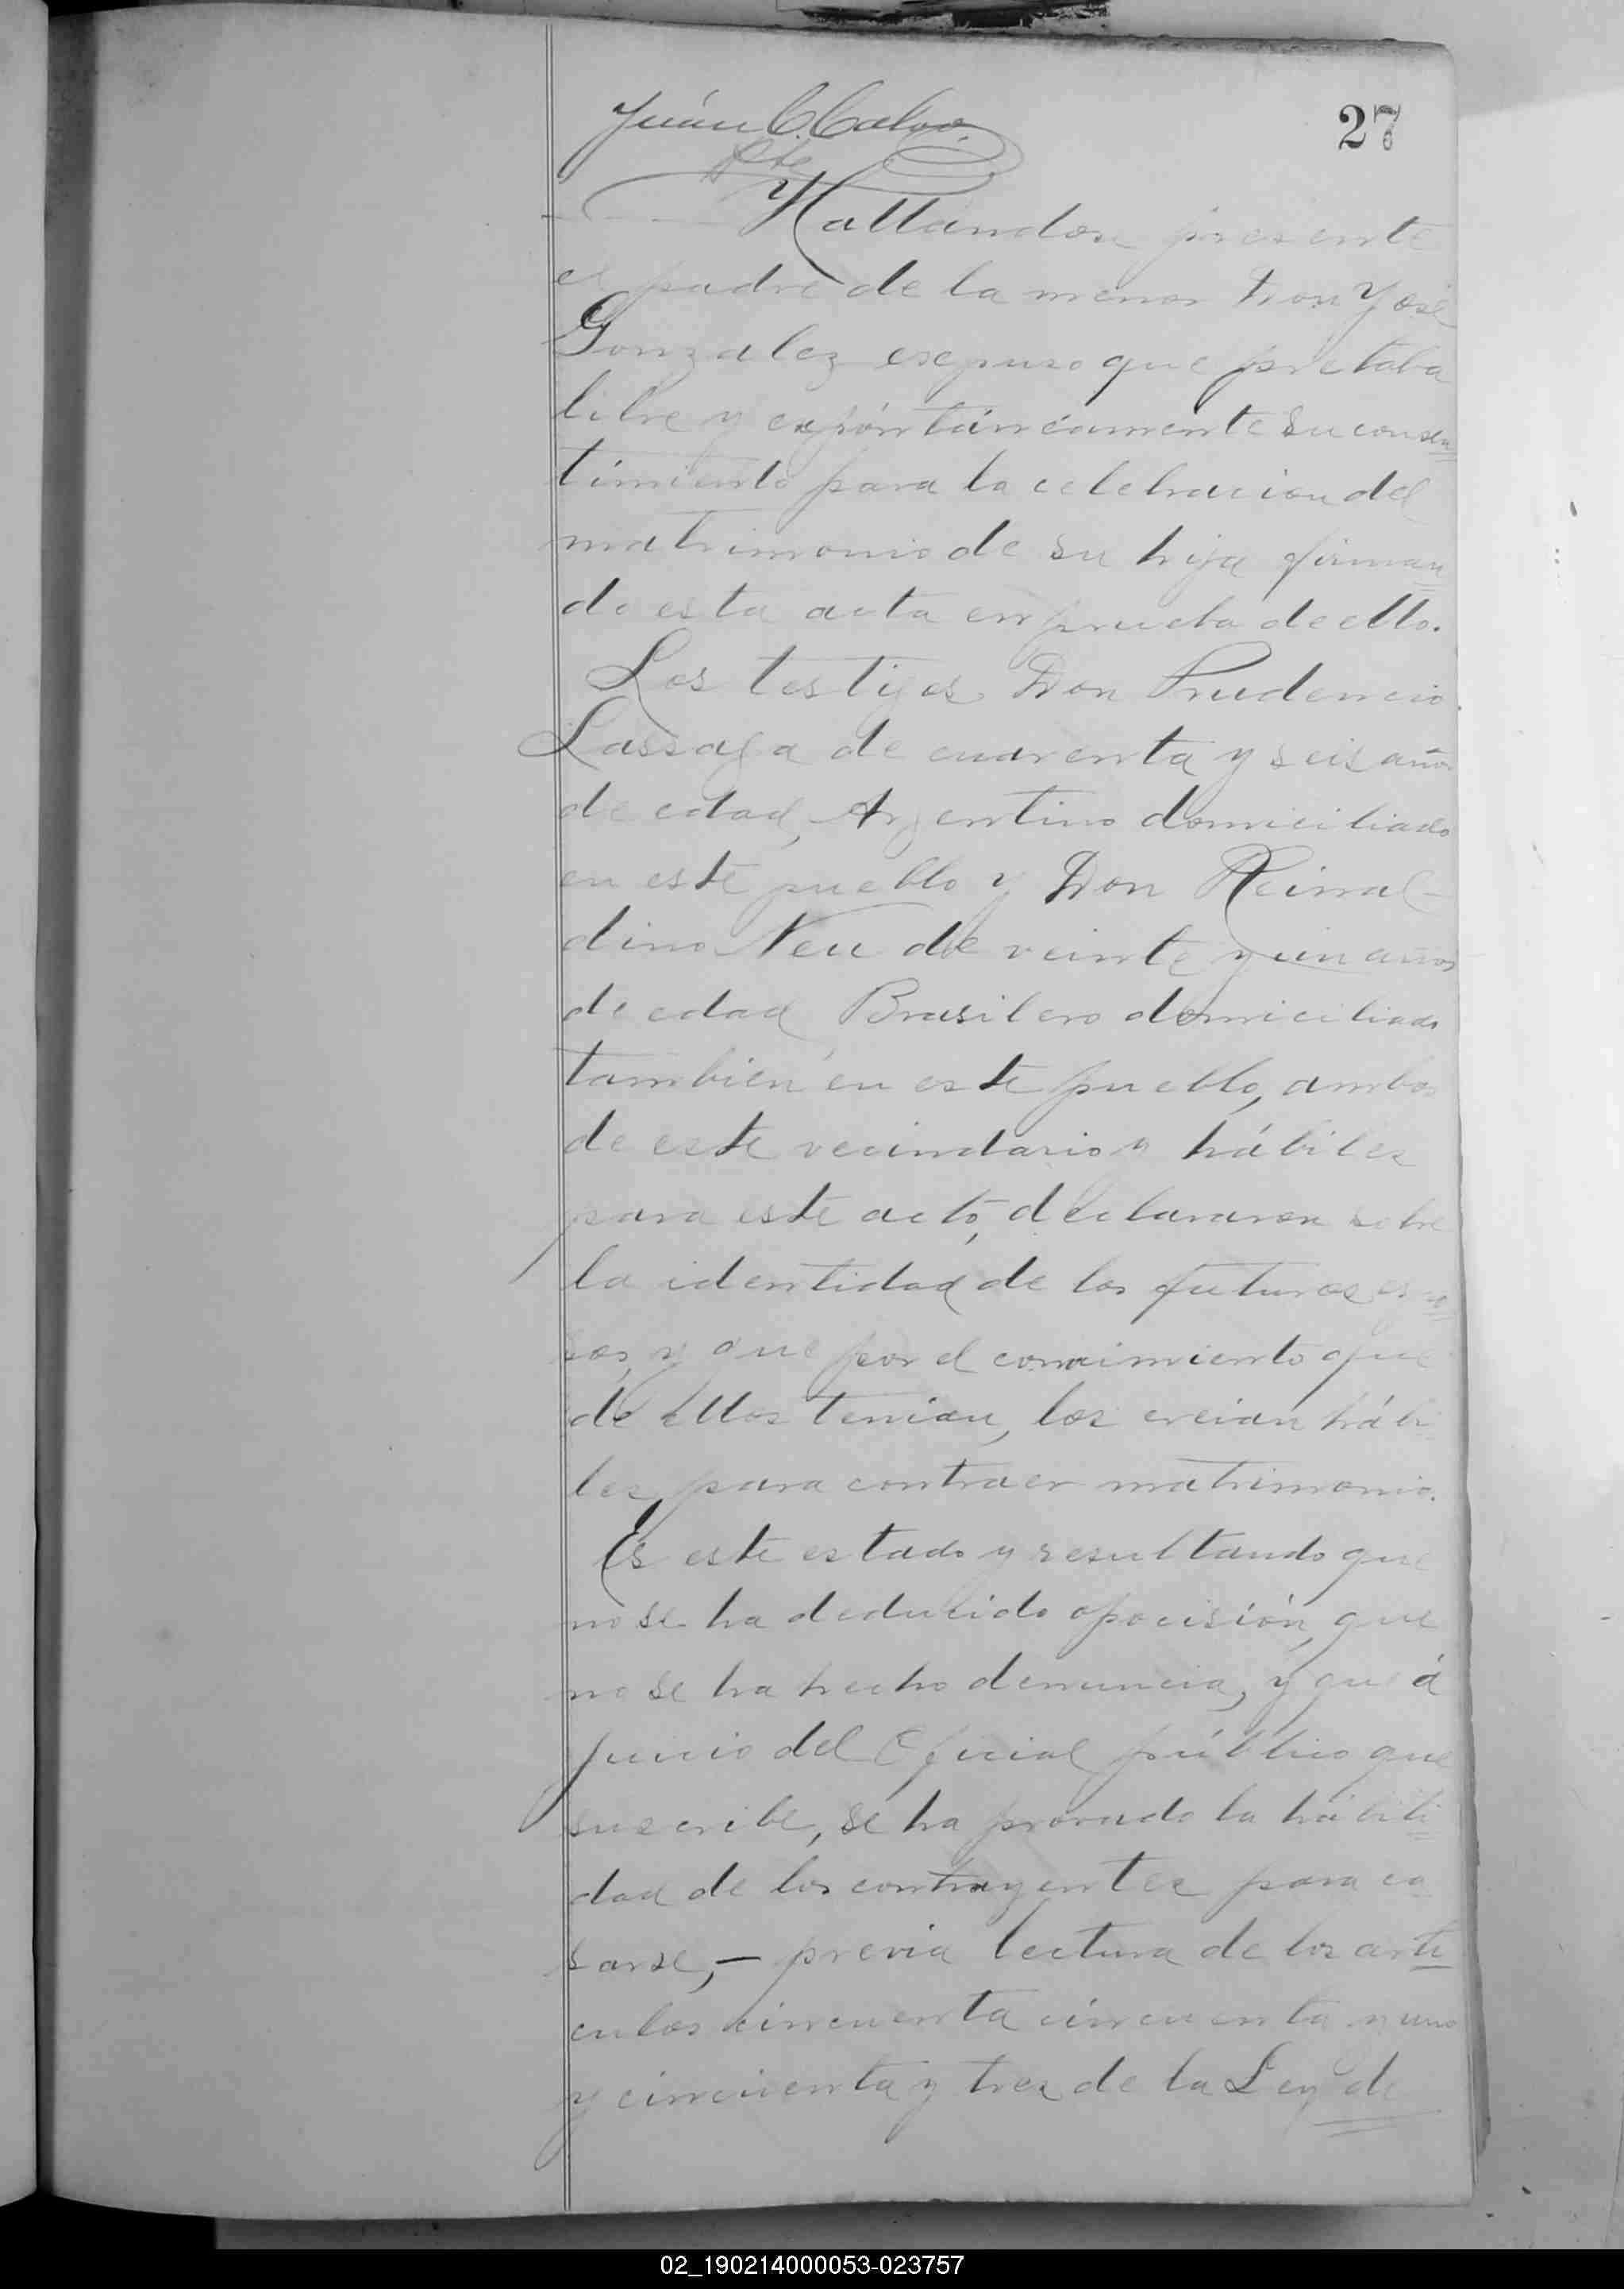 27
Juán C. Calvo
Pte
Hallándose presente
el padre de la menor Don José
Gonzalez escpuso que pretaba
libre y expóntáneamente su consen
timiento para la celebracion del
matrimonio de su hija firman
do esta acta en prueba de ello.
Los testigos Don Prudencio
Lassaga de cuarenta y seis años
de edad, Argentino domiciliado
en este pueblo y Don Reinal-
dino Neu de veinte y un años
de edad, Brasilero domiciliado
tambien en este pueblo, ambos
de este vecindario y hábiles
para este acto, declararon sobre
la identidad de los futuros espo
sos, y que por el conocimiento que
de ellos tenian, los creian hábi
les para contraer matrimonio.
Es este estado y resultando que
no se ha deducido opocisión, que
no se ha hecho denuncia, y que á
juicio del Oficial público que
suscribe, se ha provado la hábili
dad de los contrayentes para ca
sarse,- previa lectura de los arti
culos cincuenta cincuenta y uno
y cincuenta y tres de la Ley de
02_190214000053-023757